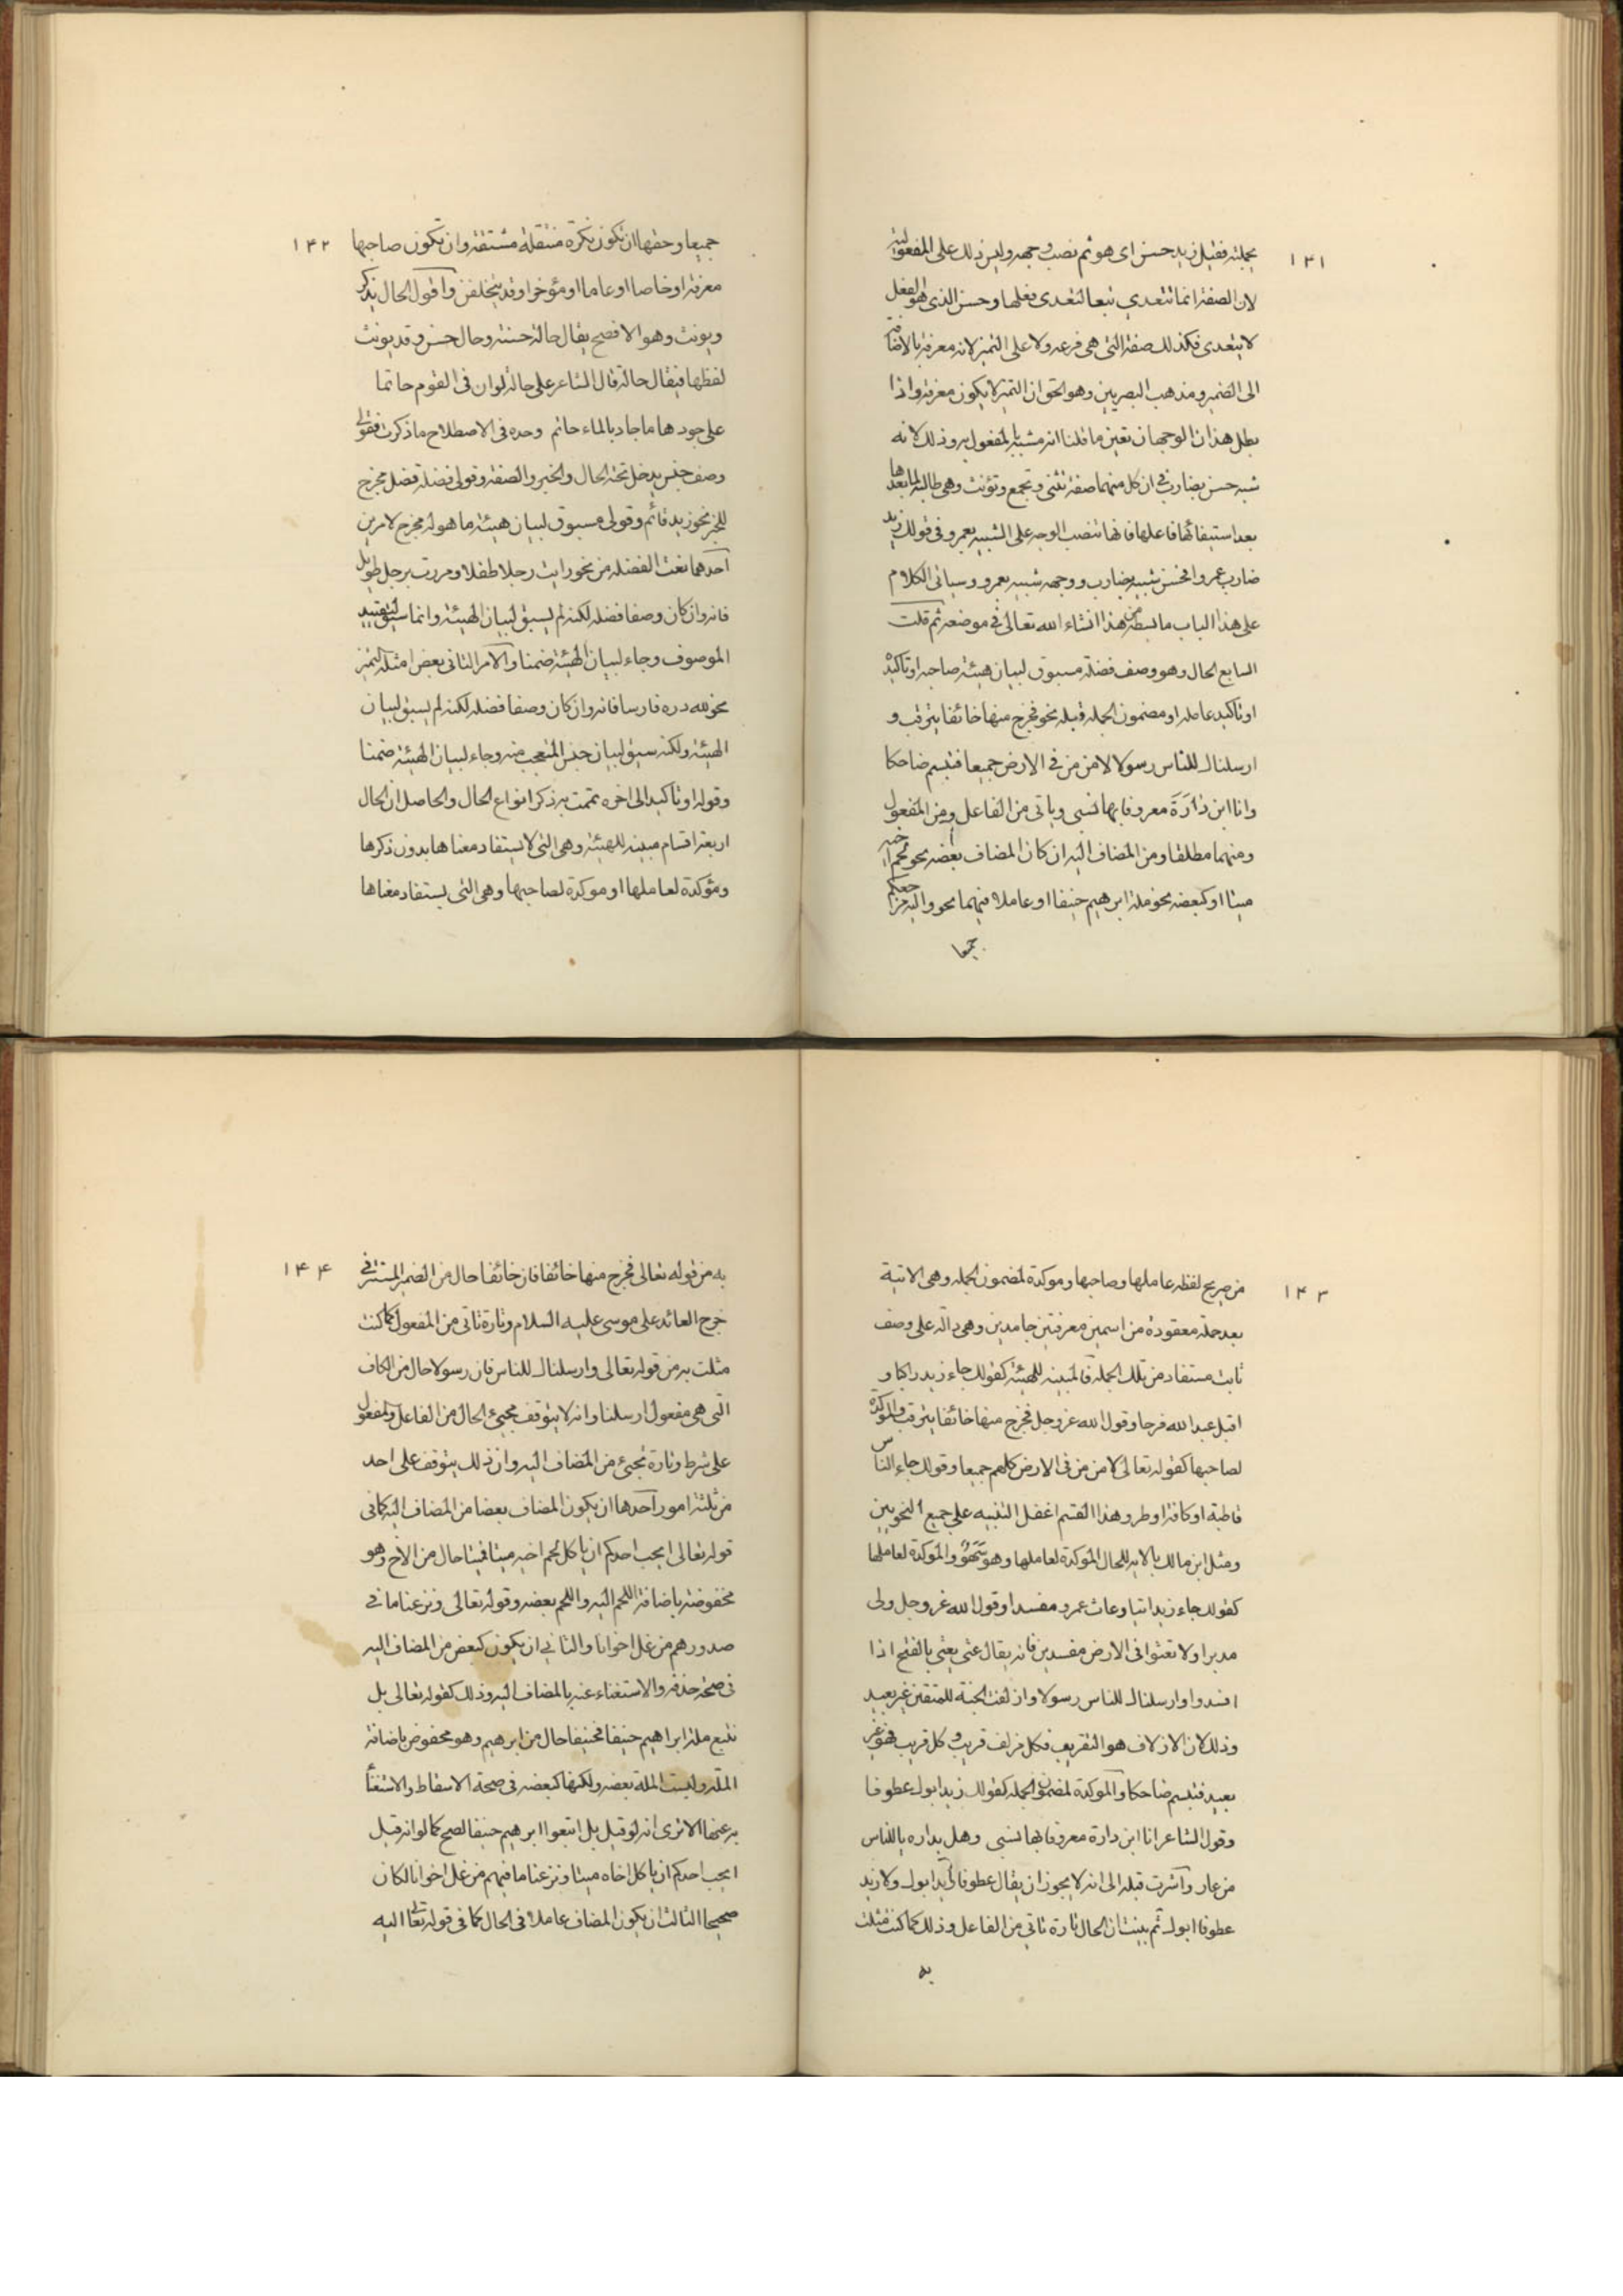 ١٤١
بجملته فقيل زيد حسن اى هو ثم نصب وجهه وليس ذلك على المفعولية
لان الصفة انما تتعدي تبعا لتعدى فعلها وحسن الذى هو الفعل
لا يتعدى فكذلك صفته التى هى فرعه ولا على التميز لانه معرفة بالاضافة
الى الضمير ومذهب البصريين وهو الحق ان التميز لا يكون معرفة واذا
بطل هذان الوجهان تعين ما قلنا انه مشبه بالمفعول به وذلك لانه
شبه حسن بضارب في ان كل منهما صفة تثنى وتجمع وتؤنث وهى طالبة لما بعدها
بعد استيفائها فاعلها فانها تنصب الوجه على التشبيه بعمرو فى قولك زيد
ضارب عمروا فحسن شبيه بضارب ووجهه شبيه بعمرو وسياتى الكلام
على هذا الباب مابسط من هذا انشاء الله تعالى في موضعه ثم قلت
السابع الحال وهو وصف فضلة مسبوق لبيان هيئة صاحبه او تاكيده
او تاكيد عامله او مضمون الجملة قبله نحو فخرج منها خائفا يترقب و
ارسلناك للناس رسولا لامن من في الارض جميعا فتبسم ضاحكا
وانا ابن دارة معروفا بها نسبى وياتى من الفاعل ومن المفعول
ومنهما مطلقا ومن المضاف اليه ان كان المضاف بعضه نحو لحم اخيه
ميتا او كبعضه نحو ملة ابرهيم حنيفا او عاملا فيهما نحو واليه مرجعكم
جميعا
١٤٢
جميعا وحقها ان تكون نكرة منتقلة مشتقة وان تكون صاحبها
معرفة او خاصا او عاما او مؤخرا وقد يتخلفن واقول الحال يذكر
ويونث وهو الافصح يقال حالة حسنة وحال حسن وقد يونث
لفظها فيقال حالة قال الشاعر على حالة لو ان فى القوم حاتما
على جوده ما جاد بالماء حاتم وحده فى الاصطلاح ما ذكرت فقولى
وصف جنس يدخل تحته الحال والخبر والصفة وقولى فضلة فصل مخرج
للخبر نحو زيد قائم وقولى مسبوق لبيان هيئة ما هو له مخرج لامرين
احدهما نعت الفضلة من نحو رايت رجلا طفلا ومررت برجل طويل
فانه وان كان وصفا فضلة لكنه لم يسبق لبيان الهيئة وانما سيق لتقييد
الموصوف وجاء لبيان الهيئة ضمنا والامر الثانى بعض امثلة التميز
نحو لله دره فارسا فانه وان كان وصفا فضلة لكنه لم يسبق لبيان
الهيئة ولكنه سيق لبيان جنس المتعجب منه وجاء لبيان الهيئة ضمنا
وقوله او تاكيد الى اخره تتمت به ذكر انواع الحال والحاصل ان الحال
اربعة اقسام مبينة للهيئة وهى التى لا يستفاد معناها بدون ذكرها
ومؤكدة لعاملها او موكدة لصاحبها وهى التى يستفاد معناها
١٤٣
من صريح لفظ عاملها وصاحبها وموكدة لمضمون الجملة وهى الاتية
بعد جملة معقودة من اسمين معرفتين جامدين وهى دالة على وصف
ثابت مستفاد من تلك الجملة فالمبينة للهيئة كقولك جاء زيد راكبا و
اقبل عبد الله فرحا وقول الله عز وجل فخرج منها خائفا يترقب والموكدة
لصاحبها كقوله تعالى لامن من فى الارض كلهم جميعا وقولك جاء الناس
قاطبة او كافة او طرو هذا القسم اغفل التنبيه على جميع النحويين
ومثل ابن مالك بالاية للحال المؤكدة لعاملها وهو سهو والموكدة لعاملها
كقولك جاء زيد اتيا وعاث عمرو مفسدا وقول الله عز وجل ولى
مدبرا ولا تعثوا فى الارض مفسدين فانه يقال عثى يعثى بالفتح اذا
افسدوا وارسلناك للناس رسولا وازلفت الجنة للمتقين غير بعيد
وذلك لان الازلاف هو التقريب فكل مزلف قريب وكل قريب فهو غير
بعيد فتبسم ضاحكا والموكدة لمضمون الجملة كقولك زيد ابوك عطوفا
وقول الشاعر انا ابن دارة معروفا بها نسبى وهل بداره ياللناس
من عار واشرت قبله الى انه لا يجوز ان يقال عطوفا زيد ابوك ولا زيد
عطوفا ابوك ثم بينت ان الحال تارة تاتي من الفاعل وذلك كما كنت مثلت
به
١٤٤
به من قوله تعالى فخرج منها خائفا فان خائفا حال من الضمير المستتر في
خرج العائد على موسى عليه السلام وتارة تاتى من المفعول كما كنت
مثلت به من قوله تعالى وارسلناك للناس فان رسولا حال من الكاف
التى هى مفعول ارسلنا وانه لا يتوقف مجيئ الحال من الفاعل والمفعول
على شرط وتارة تجيئ من المضاف اليه وان ذلك يتوقف على احد
من ثلثة امور احدها ان يكون المضاف بعضا من المضاف اليه كما فى
قوله تعالى ايحب احدكم ان ياكل لحم اخيه ميتا فميتا حال من الاخ وهو
مخفوضة باضافة اللحم اليه واللحم بعضه وقوله تعالى ونزعنا ما في
صدورهم من غل اخوانا والثاني ان يكون كبعض من المضاف اليه
فى صحة حذفه والاستغناء عنه بالمضاف اليه وذلك كقوله تعالى بل
نتبع ملة ابراهيم حنيفا فحنيفا حال من ابرهيم وهو مخفوض باضافة
الملة وليست الملة بعضه ولكنها كبعضه فى صحة الاسقاط والاستغنأ
به عنها الا ترى انه لو قيل بل اتبعوا ابرهيم حنيفا لصح كما لو انه قيل
ايحب احدكم ان ياكل اخاه ميتا ونزعنا ما فيهم من غل اخوانا لكان
صحيحا الثالث ان يكون المضاف عاملا فى الحال كما فى قوله تعالى اليه